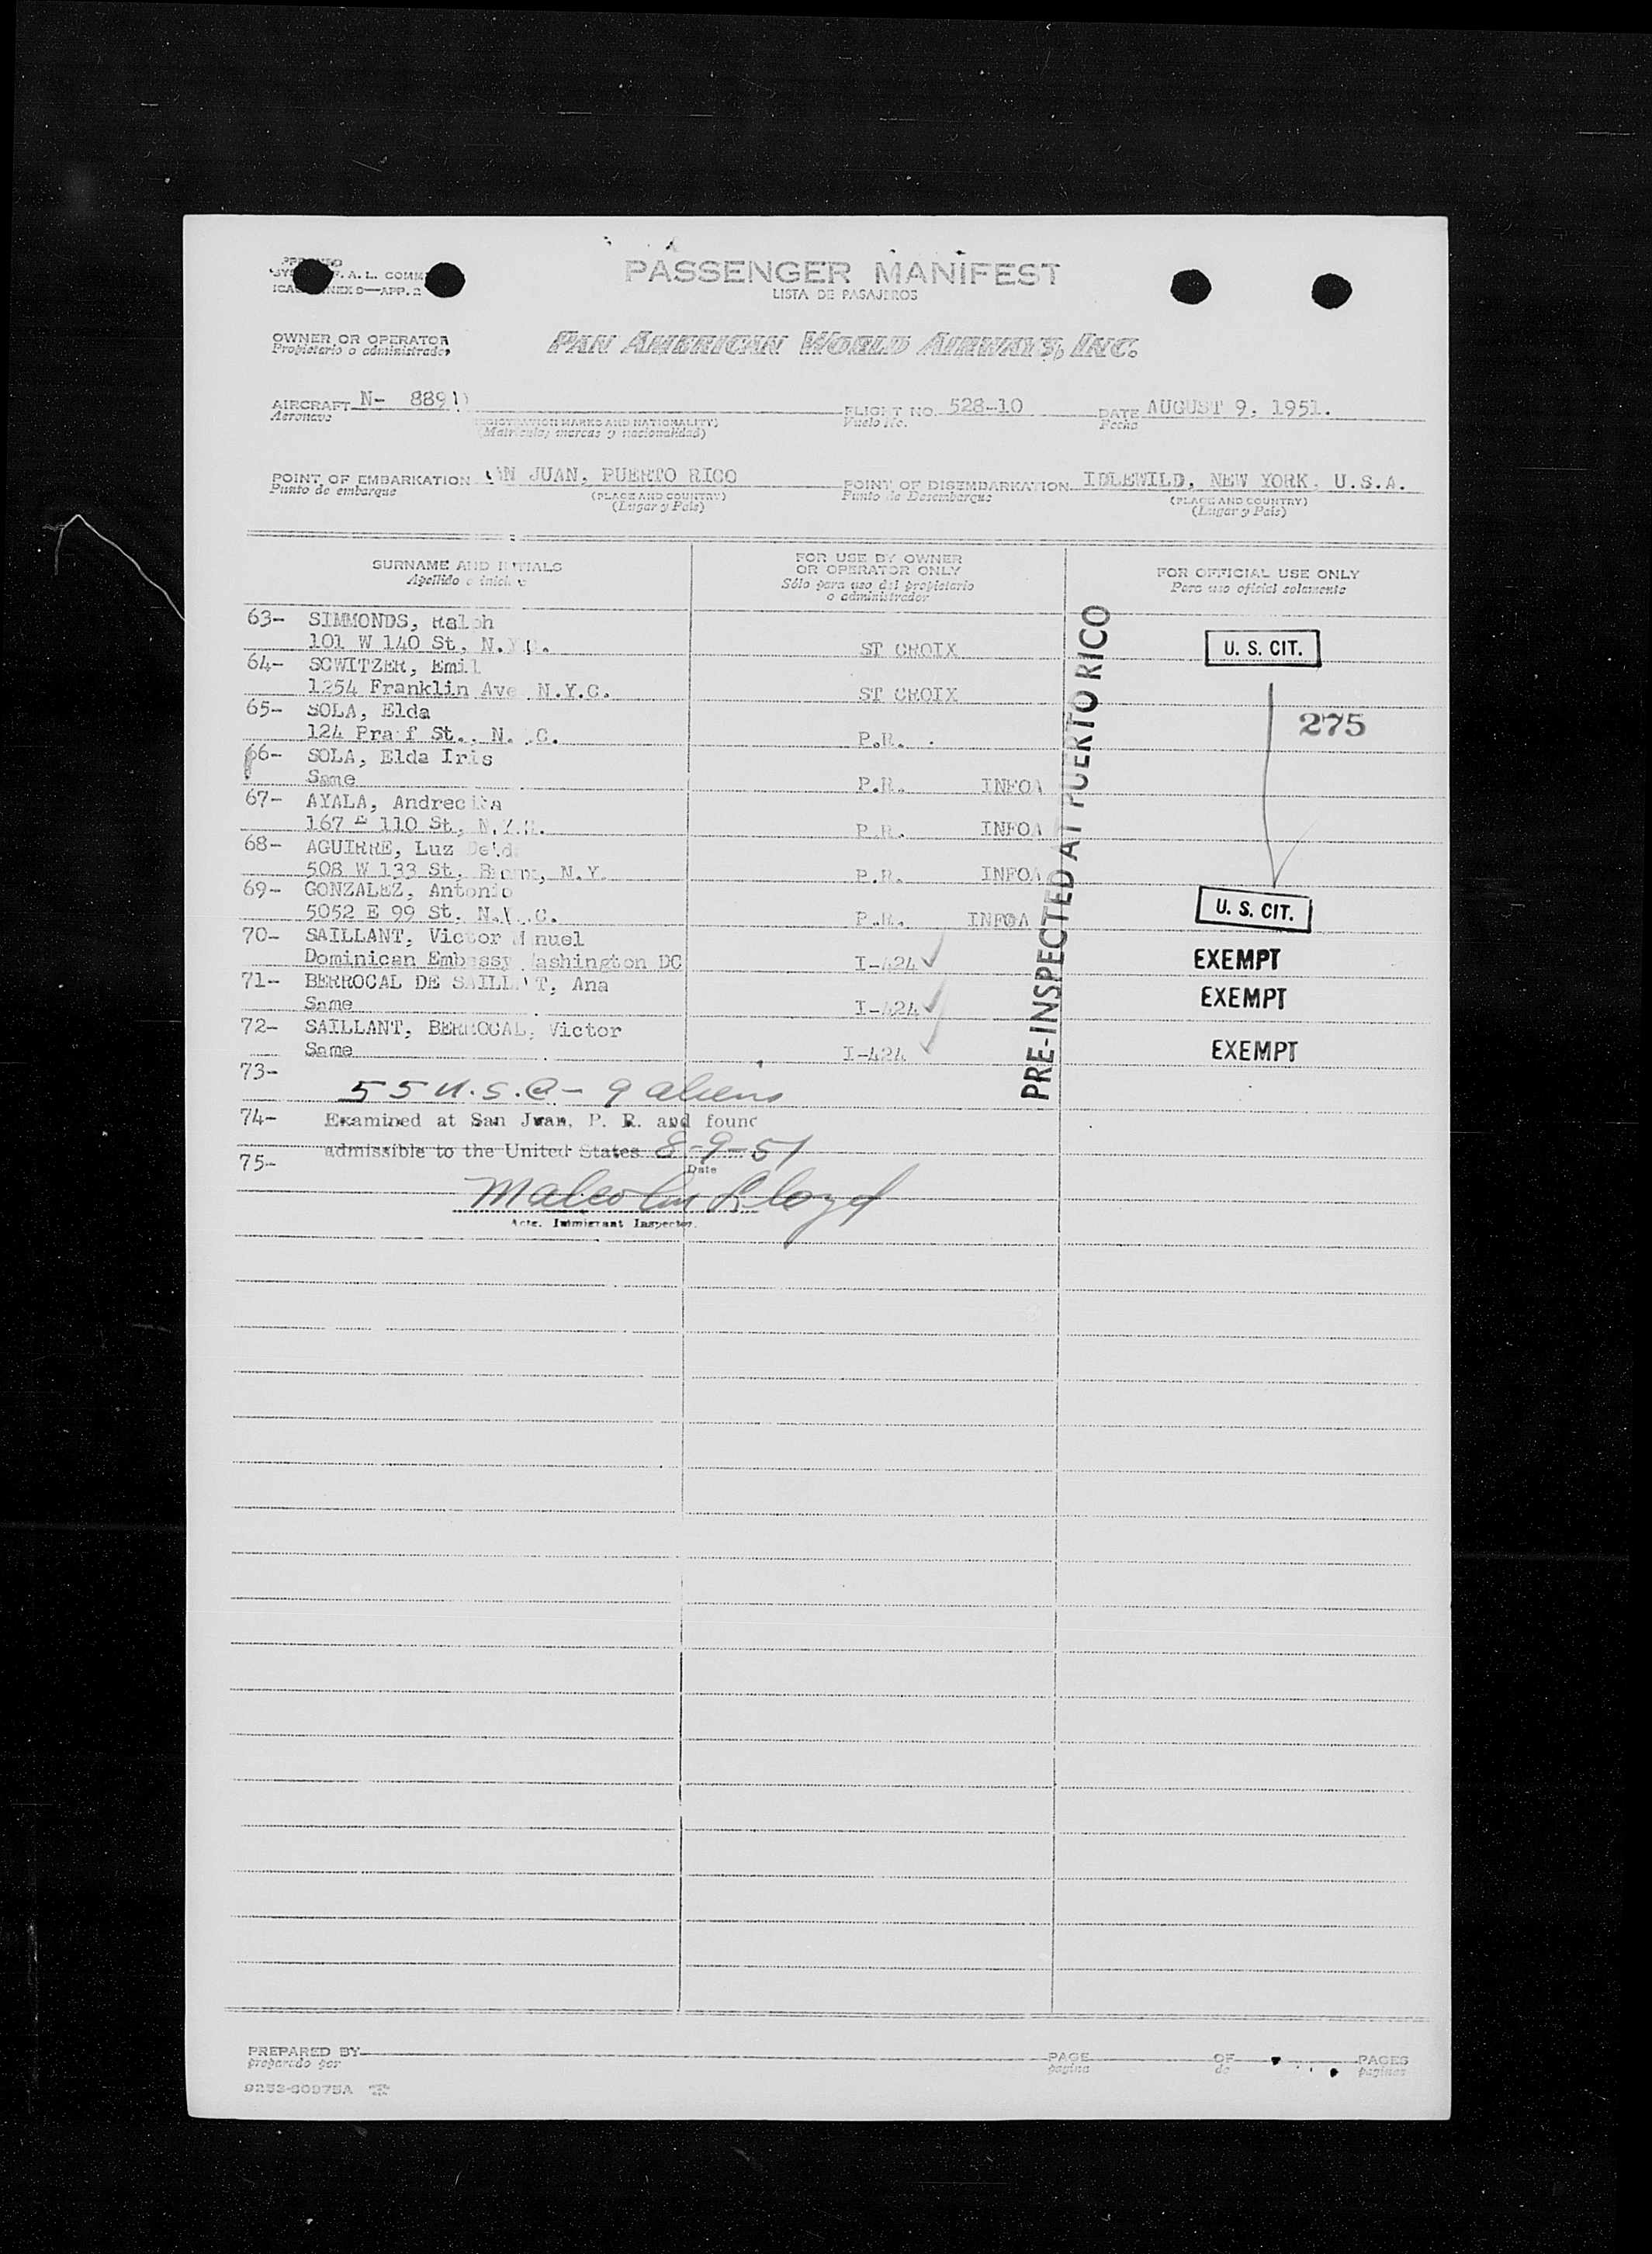 PASSENGER MANIFEST
LISTA DE PASAJEROS
F. A. L. COMM
APP. 2
OWNER OR OPERATOR
Propietario o administrador
PAN AMERICAN WORLD AIRWAYS, INC.
AIRCRAFT N- 889 FLIGHT NO. 528-10 DATE AUGUST 9, 1951.
Aeronave Vuelo No. Fecha
(REGISTRATION MARKS AND NATIONALITY)
(Matricula, marcas y nacionalidad)
POINT OF EMBARKATION AN JUAN, PUERTO RICO POINT OF DISEMBARKATION IDLEWILD, NEW YORK, U.S.A.
Punto de embarque (PLACE AND COUNTRY) Punto de Desembarque (PLACE AND COUNTRY)
(Lugar y Pais) (Lugar y Pais)
SURNAME AND INITIALS FOR USE BY OWNER OR OPERATOR ONLY FOR OFFICIAL USE ONLY
Apellido e Sólo para uso del propietario o administrador Para uso oficial solamente
63- SIMMONDS, Ralph
101 W 140 St, N.Y.C. ST CROIX U. S. CIT.
64- SCWITZER, Emil
1254 Franklin Ave N.Y.C. ST CROIX
65- SOLA, Elda 275
124 St., N. .C. P.R.
66- SOLA, Elda Iris
Same P.R. INFOA
67- AYALA, Andrecita
167 E 110 St, N.Y. P.R. INFOA
68- AGUIRRE, Luz
508 W 133 St, Bronx, N.Y. P.R. INFOA
69- GONZALEZ, Antonio
5052 E 99 St. N.Y.C. P.R. INFOA U. S. CIT.
70- SAILLANT, Victor Manuel
Dominican Embassy Washington DC I-424 EXEMPT
71- BERROCAL DE SAILLANT, Ana
Same I-424 EXEMPT
72- SAILLANT, BERROCAL, Victor
Same I-424 EXEMPT
PRE-INSPECTED AT PUERTO RICO
73-
55 U.S.C - 9 aliens
74- Examined at San Juan, P. R. and found
admissible to the United States 8-9-51
75- Date
Malcolm Lloyd
Actg. Immigrant Inspector.
PREPARED BY PAGE OF PAGES
preparado por pagina de paginas